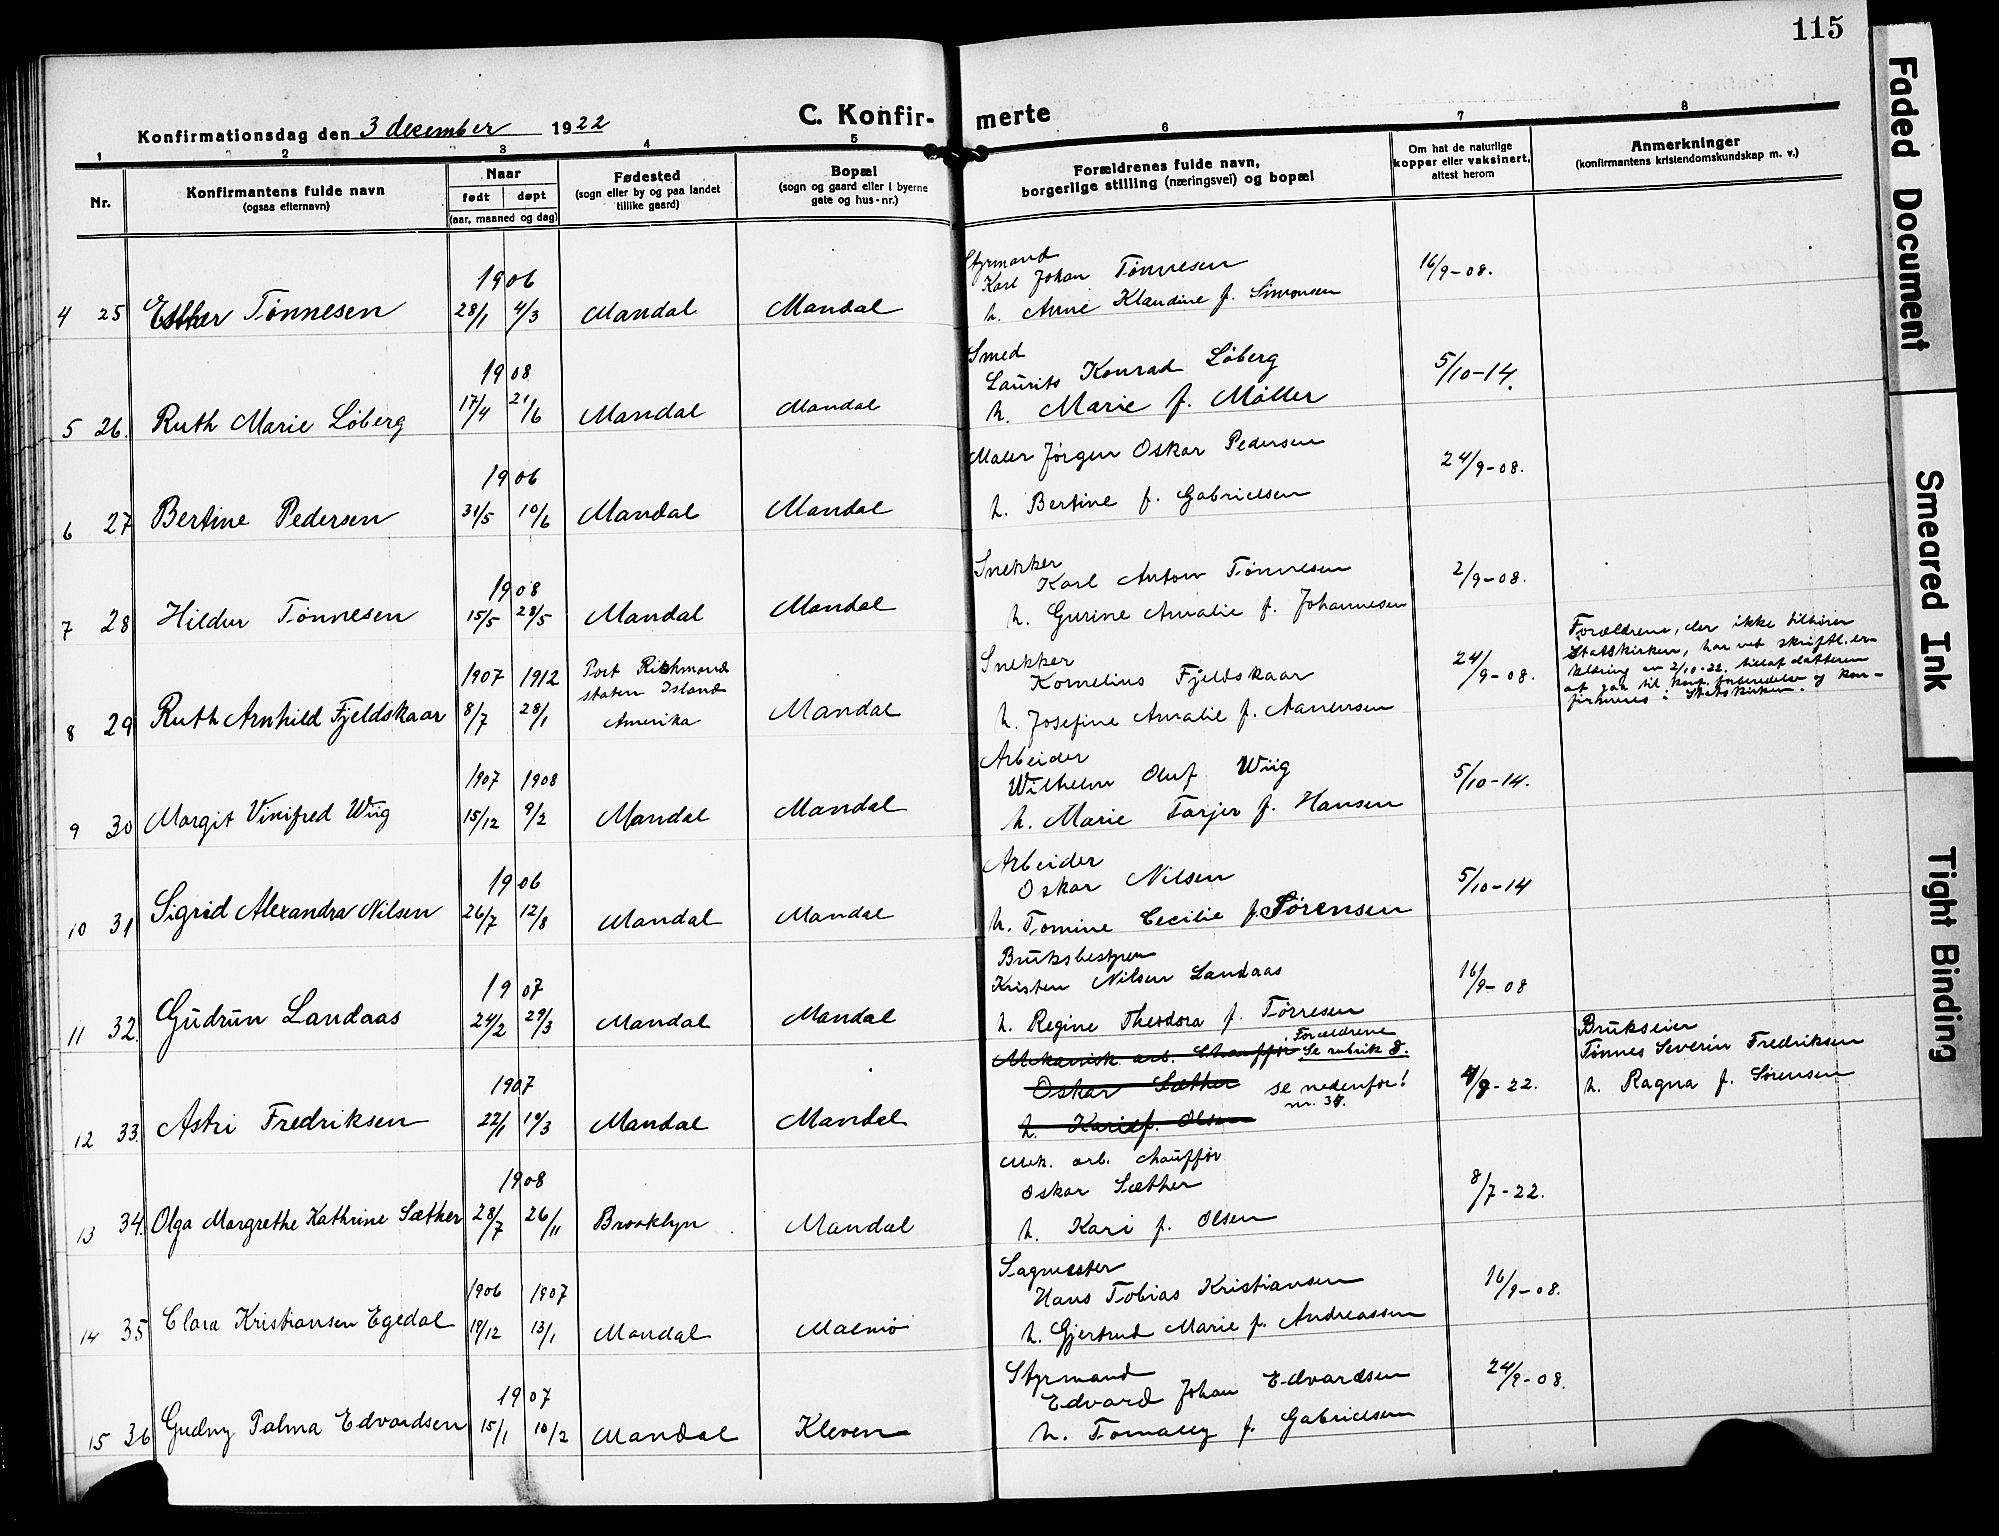 115
Faded Document
Smeared Ink
Tight Binding
Konfirmationsdag den 3 desember 1922
C. Konfirmerte
1 2 3 4 5 6 7 8
Nr.
Konfirmantens fulde navn
(ogsaa efternavn)
Naar
født døpt
(aar, maaned og dag)
Fødested
(sogn eller by og paa landet
tillike gaard)
Bopæl
(sogn og gaard eller i byerne
gate og hus-nr.)
Forældrenes fulde navn,
borgerlige stilling (næringsvei) og bopæl
Om hat de naturlige
kopper eller vaksinert,
attest herom
Anmerkninger
(konfirmantens kristendomskundskap m. v.)
1906
Styrmand
Karl Johan Tønnesen
16/9-08.
4 25 Esther Tønnesen 28/1 4/3 Mandal Mandal h. Anne Klaudine f. Simonsen
1908
Smed
Laurits Konrad Løberg
5/10-14.
5 26. Ruth Marie Løberg 17/4 21/6 Mandal Mandal h. Marie f. Møller
1906
Maler Jørgen Oskar Pedersen
24/9-08.
6 27 Bertine Pedersen 31/5 10/6 Mandal Mandal h. Bertine f. Gabrielsen
1908
Snekker
Karl Anton Tønnesen
2/9-08.
7 28 Hildur Tønnesen 15/5 28/5 Mandal Mandal h. Gurine Amalie f. Johannesen
1907 1912
Port Richmond
staten Island
Amerika
Snekker
Kornelius Fjeldskaar
24/9-08.
8 29 Ruth Arnhild Fjeldskaar 8/7 28/1 Mandal h. Josefine Amalie f. Aanensen
Forældrene, der ikke tilhører
Statskirken, har ved skriftl. er-
klæring av 2/10-22. tillat datteren
at gaa til konf. forberedelse og kon-
firmeres i Statskirken.
1907 1908
Arbeider
Wilhelm Oluf Wiig
5/10-14.
9 30 Margit Vinifred Wiig 15/12 9/2 Mandal Mandal h. Marie Tarjer f. Hansen
1906
Arbeider
Oskar Nilsen
5/10-14
10 31 Sigrid Alexandra Nilsen 26/7 12/8 Mandal Mandal h. Tomine Cecilie f. Sørensen
1907
Bruksbestyrer
Kristen Nilsen Landaas
16/9-08
11 32. Gudrun Landaas 24/2 29/3 Mandal Mandal h. Regine Theodora f. Tørresen
1907
Mekanisk arb. Chauffør
Forældrene
Se rubrik 8.
Oskar Sæther
se nedenfor!
nr. 34.
4/9-22.
12 33. Astri Fredriksen 22/1 10/3 Mandal Mandal h. Kari f. Olsen
Brukseier
Tønnes Severin Fredriksen
h. Ragna f. Sørensen
1908
Mek. arb. chauffør
Oskar Sæther
8/7-22.
13 34. Olga Margrethe Kathrine Sæther 28/7 26/11 Brooklyn Mandal h. Kari f. Olsen
1906 1907
Sagmester
Hans Tobias Kristiansen
16/9-08.
14 35 Clara Kristiansen Egedal 19/12 13/1 Mandal Malmø h. Gjertrud Marie f. Andreassen
1907
Styrmand
Edvard Johan Edvardsen
24/9-08.
15 36 Gudny Palma Edvardsen 15/1 10/2 Mandal Kleven h. Tomally f. Gabrielsen